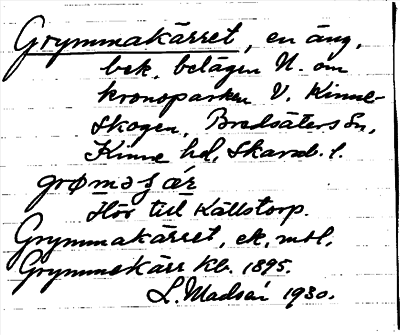 Grymmakärret, en äng,
bek. belägen N. om
kronoparken V. Kinne-
Skogen, Bredsäters Sn,
Kinne hd, Skarab. l.
grømaʃær
Hör till Källstorp.
Grymmakärret, ek. mbl.
Grymmekärr Kb. 1895.
L. Madsén 1930.